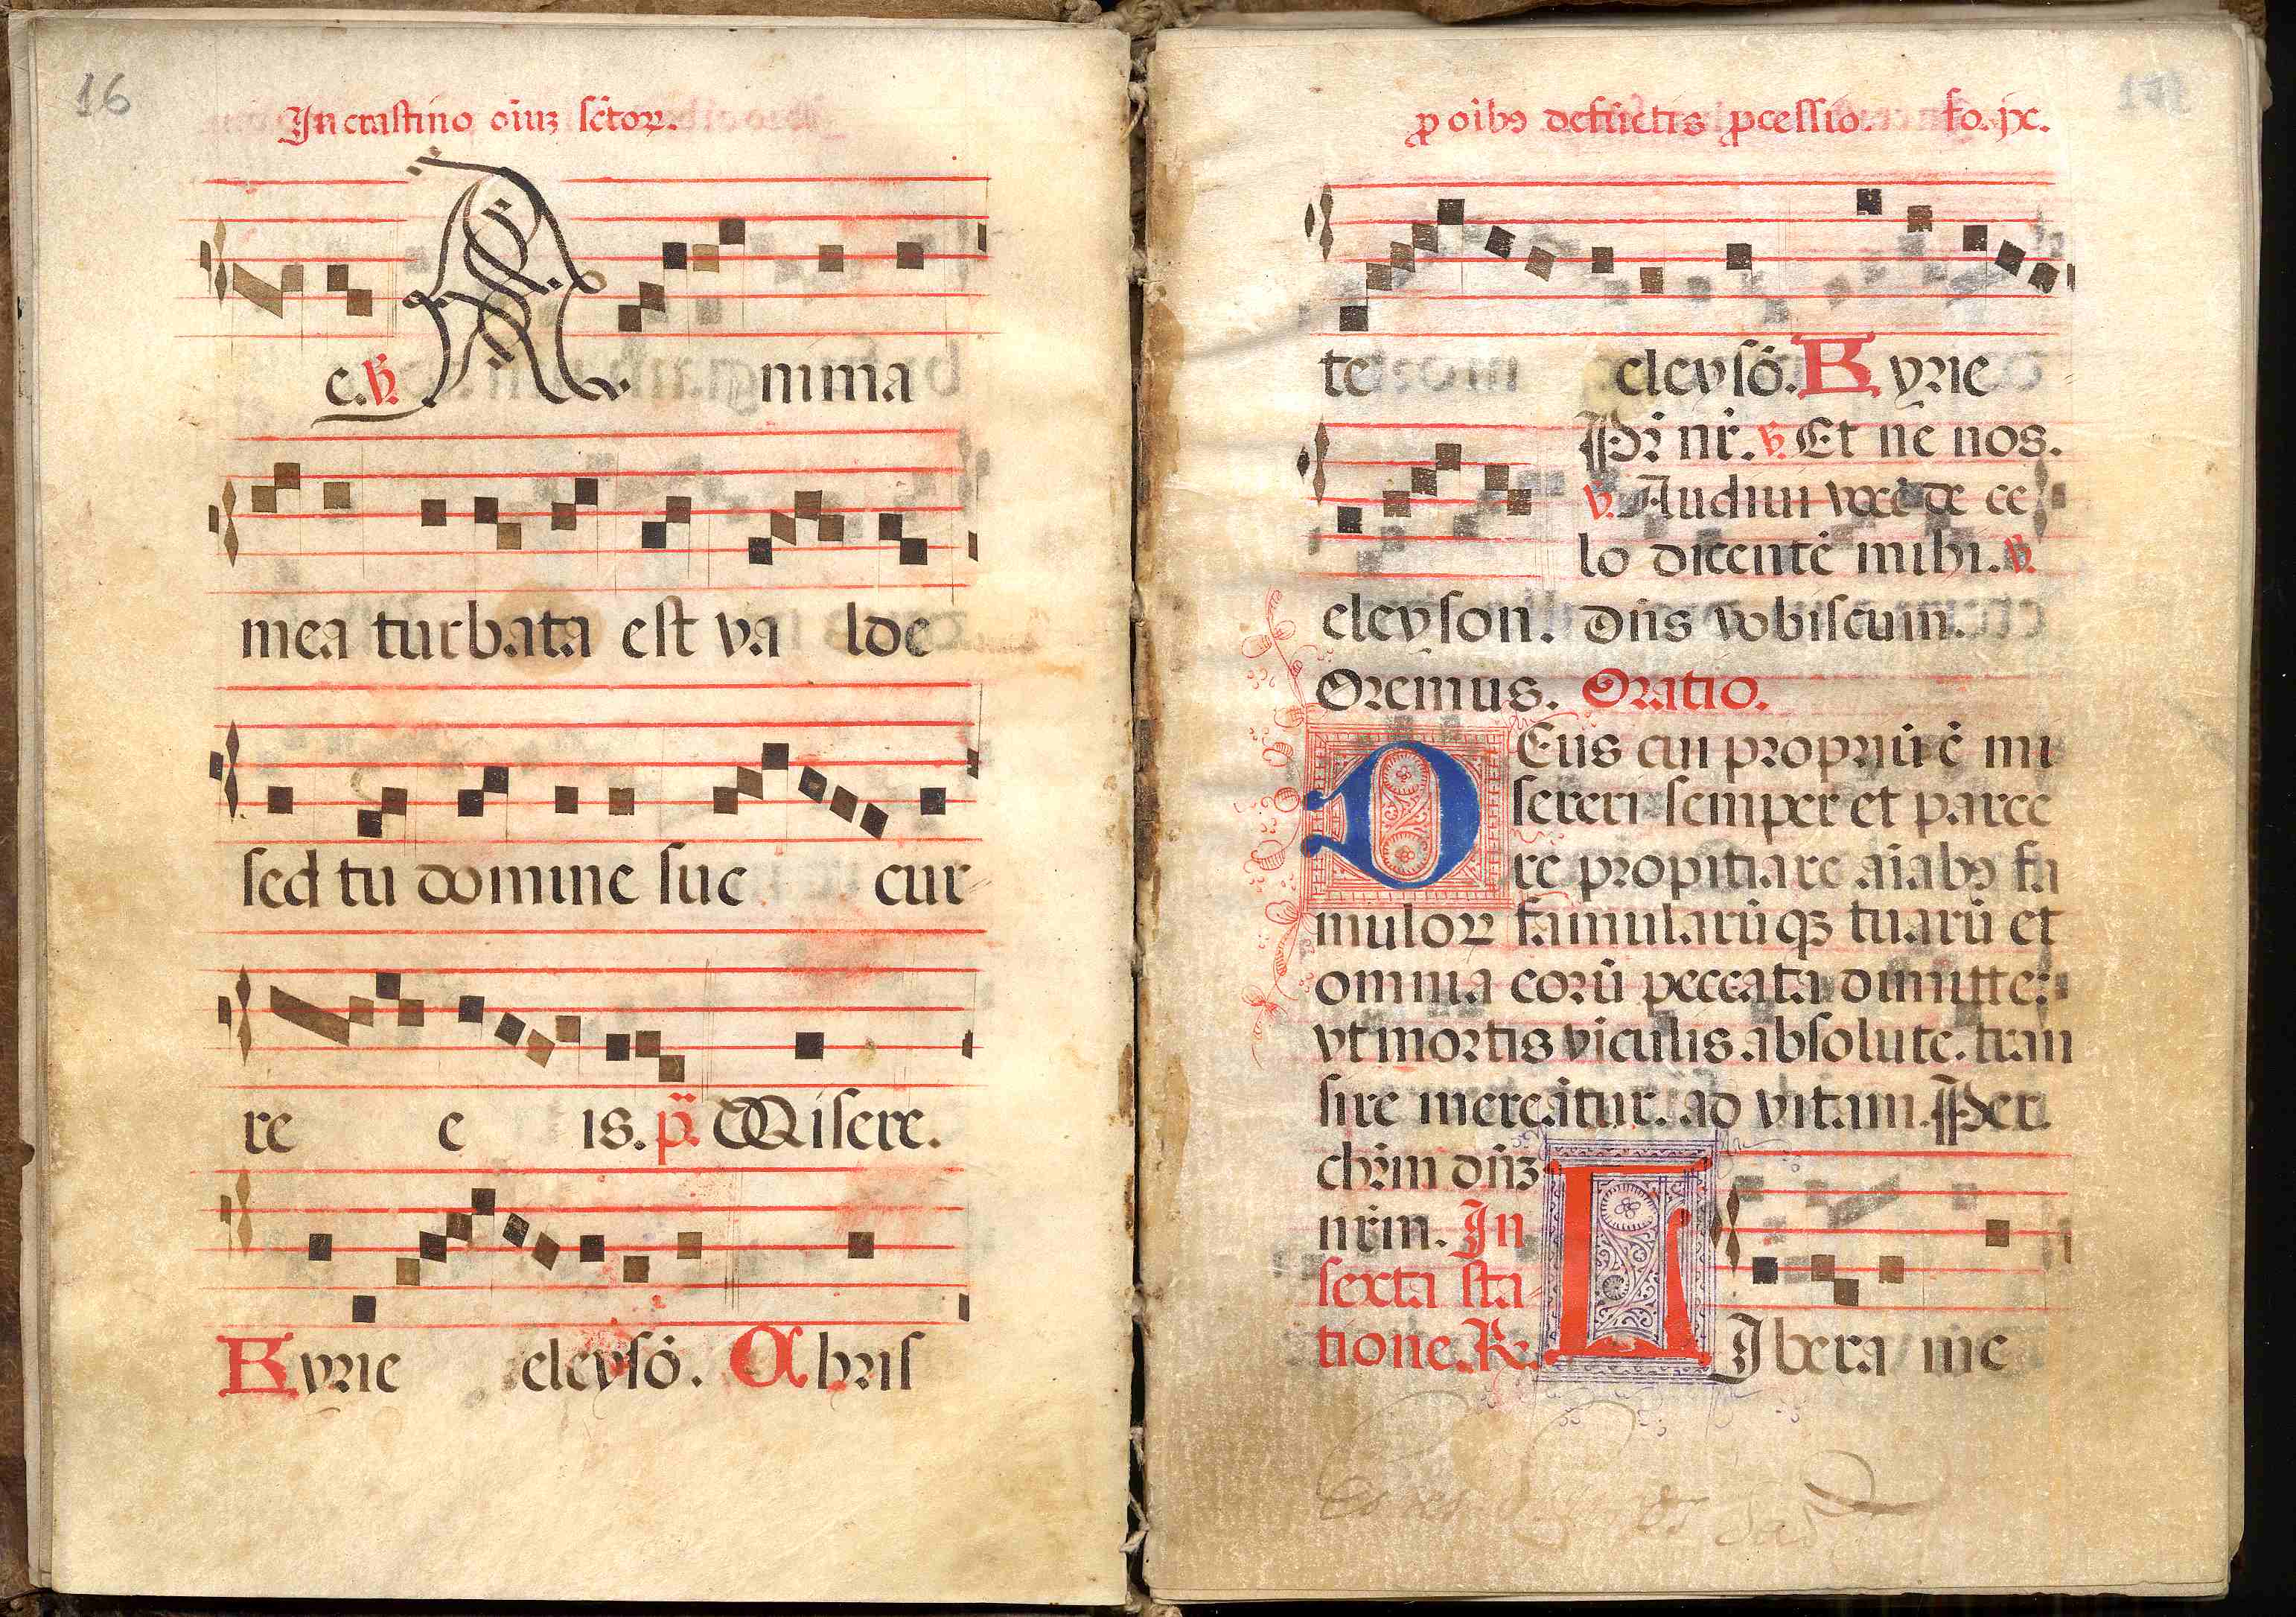 16
In crastino oīuȝ sc̄toꝝ.
e. ℣. A nima
mea turbata est va lde
sed tu domine suc cur
re e is. p̄. Misere.
Kyrie eleysō. Christ
ꝓ oibꝰ defūctis ꝓcessio. fo. ix.
te eleysō. Kyrie
Pr̄ nr̄. ℣. Et ne nos.
℣. Audiui vocē de ce
lo dicentē mihi. ℣.
eleyson. Dn̄s vobiscum.
Oremus. Oratio.
DEus cui propriū ē mi
sereri semper et parce
re propitiare aīabꝰ fa
muloꝝ famularūqꝫ tuarū et
omnia eorū peccata dimitte:
vt mortis vīculis absolute. tran
sire mereātur. ad vitam. Per
chr̄m dn̄ȝ
nr̄m. In
sexta sta
tione. ℟. LIbera me